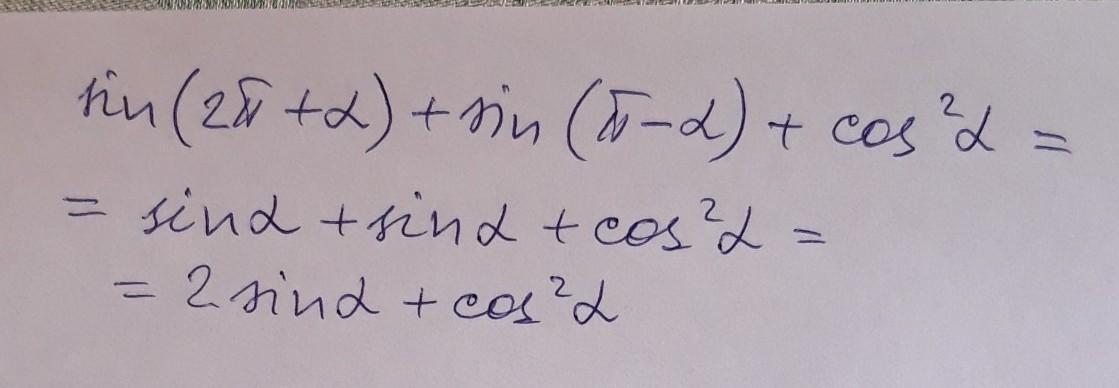 sin(2π+α)+sin(π-α)+cos²α=
=sinα+sinα+cos²α=
=2sinα+cos²α